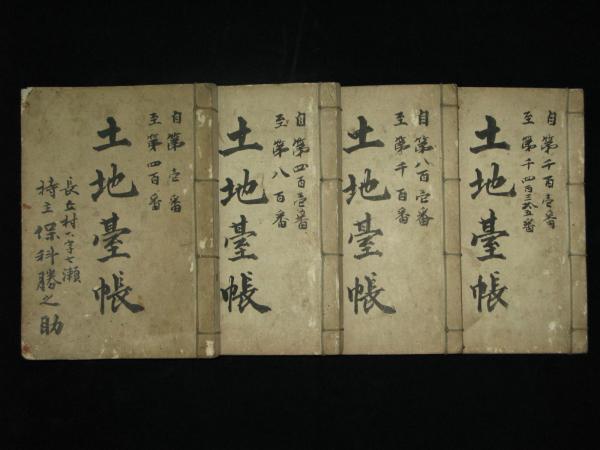 自第壱番
至第四百番
土地臺帳
長丘村大字七瀬
持主保科勝之助
自第四百壱番
至第八百番
土地臺帳
自第八百壱番
至第千百番
土地臺帳
自第千百壱番
至第千四百三拾五番
土地臺帳